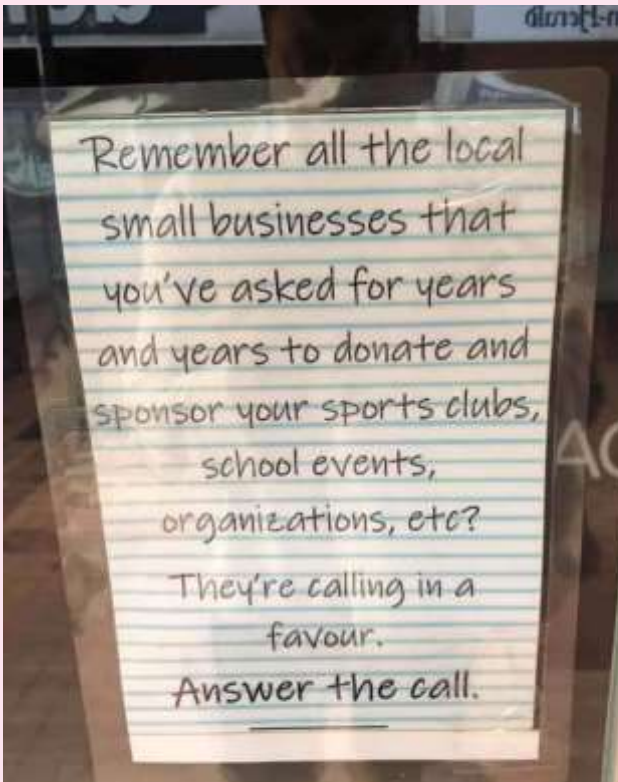 Remember all the local
small businesses that
you've asked for years
and years to donate and
sponsor your sports clubs,
school events,
organizations, etc?
They're calling in a
favour.
Answer the call.